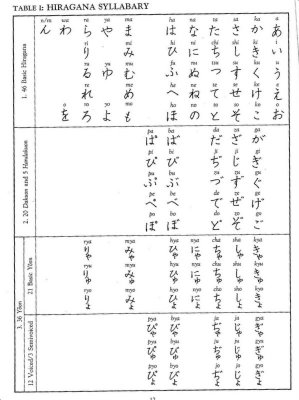 TABLE 1: HIRAGANA SYLLABARY
1. 46 Basic Hiragana
wa ra ya ma ha na ta sa ka a
ん わ ら や ま は な た さ か あ
り み ひ に ち し き い
る ゆ む ふ ぬ つ す く う
れ め へ ね て せ け え
を ろ よ も ほ の と そ こ お
2. 20 Dakuon and 5 Handakuon
pa ba da za ga
ぱ ば だ ざ が
pi bi ji ji gi
ぴ び ぢ じ ぎ
pu bu zu zu gu
ぷ ぶ づ ず ぐ
pe be de ze ge
ぺ べ で ぜ げ
po bo do zo go
ぽ ぼ ど ぞ ご
3. 36 Yōon
21 Basic Yōon
rya mya hya nya cha sha kya
りゃ みゃ ひゃ にゃ ちゃ しゃ きゃ
ryu myu hyu nyu chu shu kyu
りゅ みゅ ひゅ にゅ ちゅ しゅ きゅ
ryo myo hyo nyo cho sho kyo
りょ みょ ひょ にょ ちょ しょ きょ
12 Voiced/3 Semivoiced
pya bya ja ja gya
ぴゃ びゃ ぢゃ じゃ ぎゃ
pyu byu ju ju gyu
ぴゅ びゅ ぢゅ じゅ ぎゅ
pyo byo jo jo gyo
ぴょ びょ ぢょ じょ ぎょ